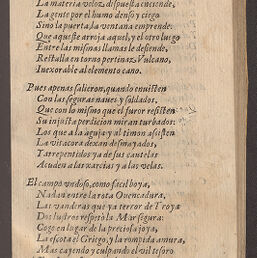 La materia veloz, dispuesta enciende,
La gente por el humo denso y ciego
Sino la puerta, la ventana emprende:
Que aqueste arroja aquel, y el otro luego
Entre las mismas llamas le defiende,
Restalla en torno pertinaz Vulcano,
Inexorable al elemento cano.
Pues apenas salieron, quando envisten
Con las seguras naues y soldados,
Que con lo mismo que el furor resisten
Su injusta perdicion miran turbados:
Los que a la aguja y al timon asisten
La vitacora dexan desmayados,
Y arrepentidos ya de sus cautelas
Acuden a las xarcias y a las velas.
El campo undoso, como facil boya,
Nadan entre la rota Quencadura,
Las vanderas que ya terror de Troya
Dos lustros respetò la Mar segura:
Coge en lugar de la preciosa joya,
La escota el Griego, y la rompida amura,
Mas cayendo y culpando el vil tesoro